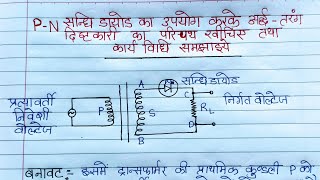 P-N सन्धि डायोड का उपयोग करके अर्द्ध-तरंग
दिष्टकारी का परिपथ खींचिए तथा
कार्य विधि समझाइये
सन्धि डायोड
प्रत्यावर्ती
निवेशी
वोल्टेज
P
A
S
B
C
RL
D
निर्गत वोल्टेज
बनावट:- इसमें ट्रान्सफार्मर की प्राथमिक कुण्डली P को